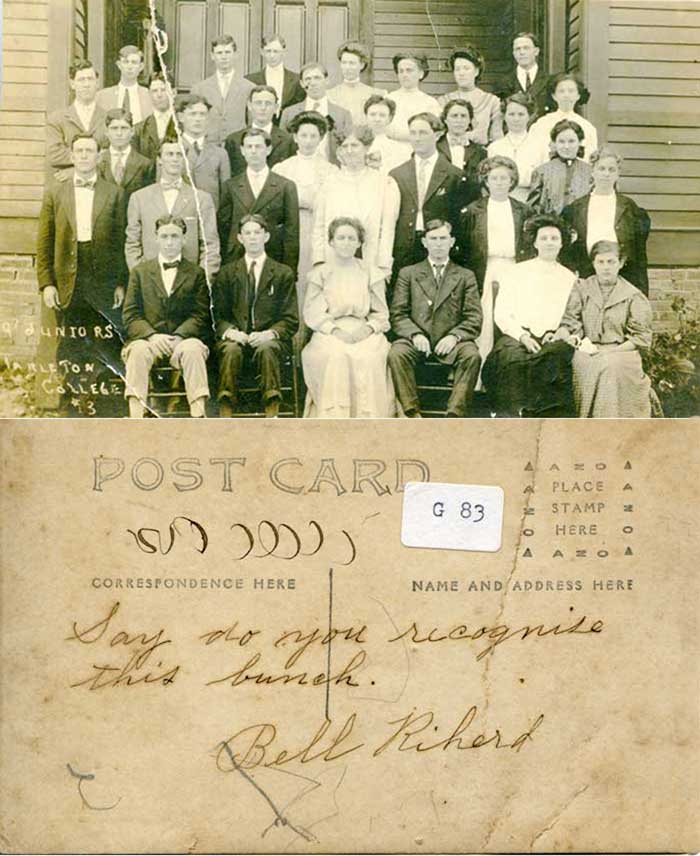 9' JUNIORS
TARLETON
COLLEGE
#3
POST CARD
G 83
▲ AZO ▲
PLACE
STAMP
HERE
▲ AZO ▲
CORRESPONDENCE HERE
NAME AND ADDRESS HERE
Say do you recognise
this bunch.
Bell Riherd